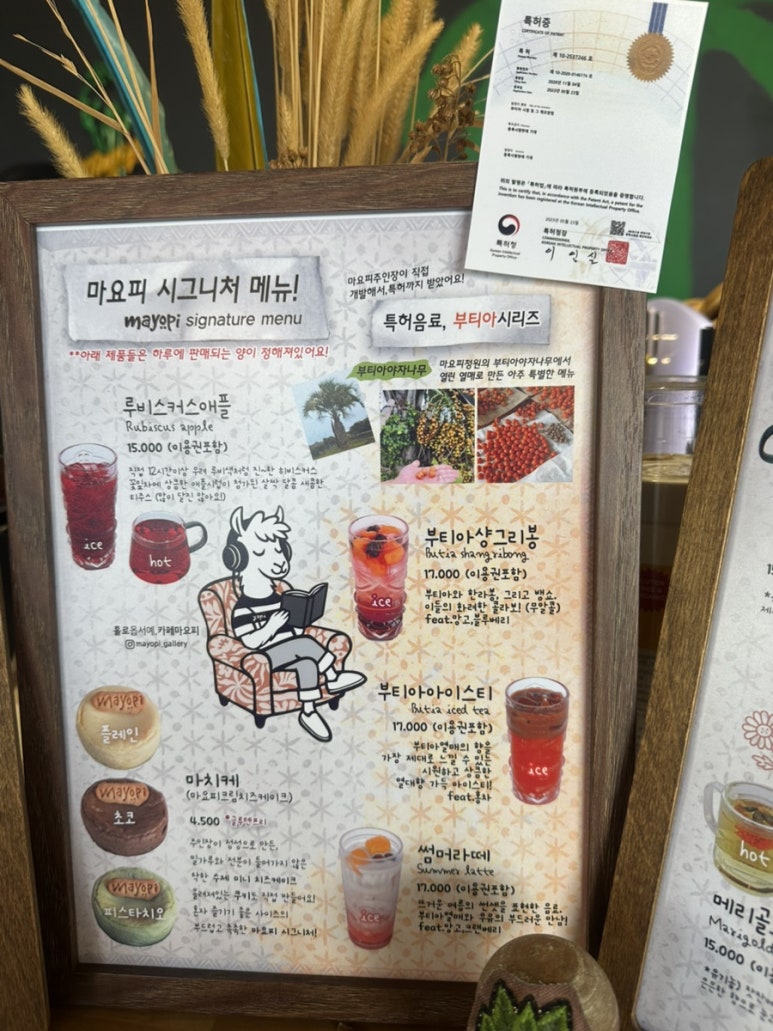 특허증
CERTIFICATE OF PATENT
특 허
제 10-2537246 호
위의 발명은 「특허법」에 따라 특허원부에 등록되었음을 증명합니다.
This is to certify that, in accordance with the Patent Act, a patent for the
invention has been registered at the Korean Intellectual Property Office.
특허청
Korean Intellectual
Property Office
특허청장
COMMISSIONER,
KOREAN INTELLECTUAL PROPERTY OFFICE
이 인 실
마요피 시그니처 메뉴!
mayopi signature menu
**아래 제품들은 하루에 판매되는 양이 정해져있어요!
마요피주인장이 직접
개발해서,특허까지 받았어요!
특허음료, 부티아시리즈
부티아야자나무
마요피정원의 부티아야자나무에서
열린 열매로 만든 아주 특별한 메뉴
루비스커스애플
Rubiscus apple
15.000 (이용권포함)
직접 12시간이상 우려 루비색처럼 진~한 히비스커스
꽃잎차에 상큼한 애플시럽이 첨가된 살짝 달콤 새콤한
티쥬스 (많이 달진 않아요!)
ice
hot
홀로옵서예, 카페마요피
mayopi_gallery
부티아샹그리봉
Butia shangribong
17.000 (이용권포함)
부티아와 한라봉, 그리고 뱅쇼.
이들의 화려한 콜라보! (무알콜)
feat.망고,블루베리
ice
부티아아이스티
Butia iced tea
17.000 (이용권포함)
부티아열매의 향을
가장 제대로 느낄 수 있는
시원하고 상큼한
열대향 가득 아이스티!
feat.홍차
ice
mayopi
플레인
mayopi
초코
mayopi
피스타치오
마치케
(마요피크림치즈케이크)
4.500 *글루텐프리
주인장이 정성으로 만든,
밀가루와 전분이 들어가지 않은
착한 수제 미니 치즈케이크
올려져있는 쿠키도 직접 만들어요!
혼자 즐기기 좋은 사이즈의
부드럽고 촉촉한 마요피 시그니처!
썸머라떼
Summer latte
17.000 (이용권포함)
뜨거운 여름의 썬셋을 표현한 음료.
부티아열매와 우유의 부드러운 만남!
feat.망고,크랜베리
ice
hot
메리골
Marigold
15.000 (이용